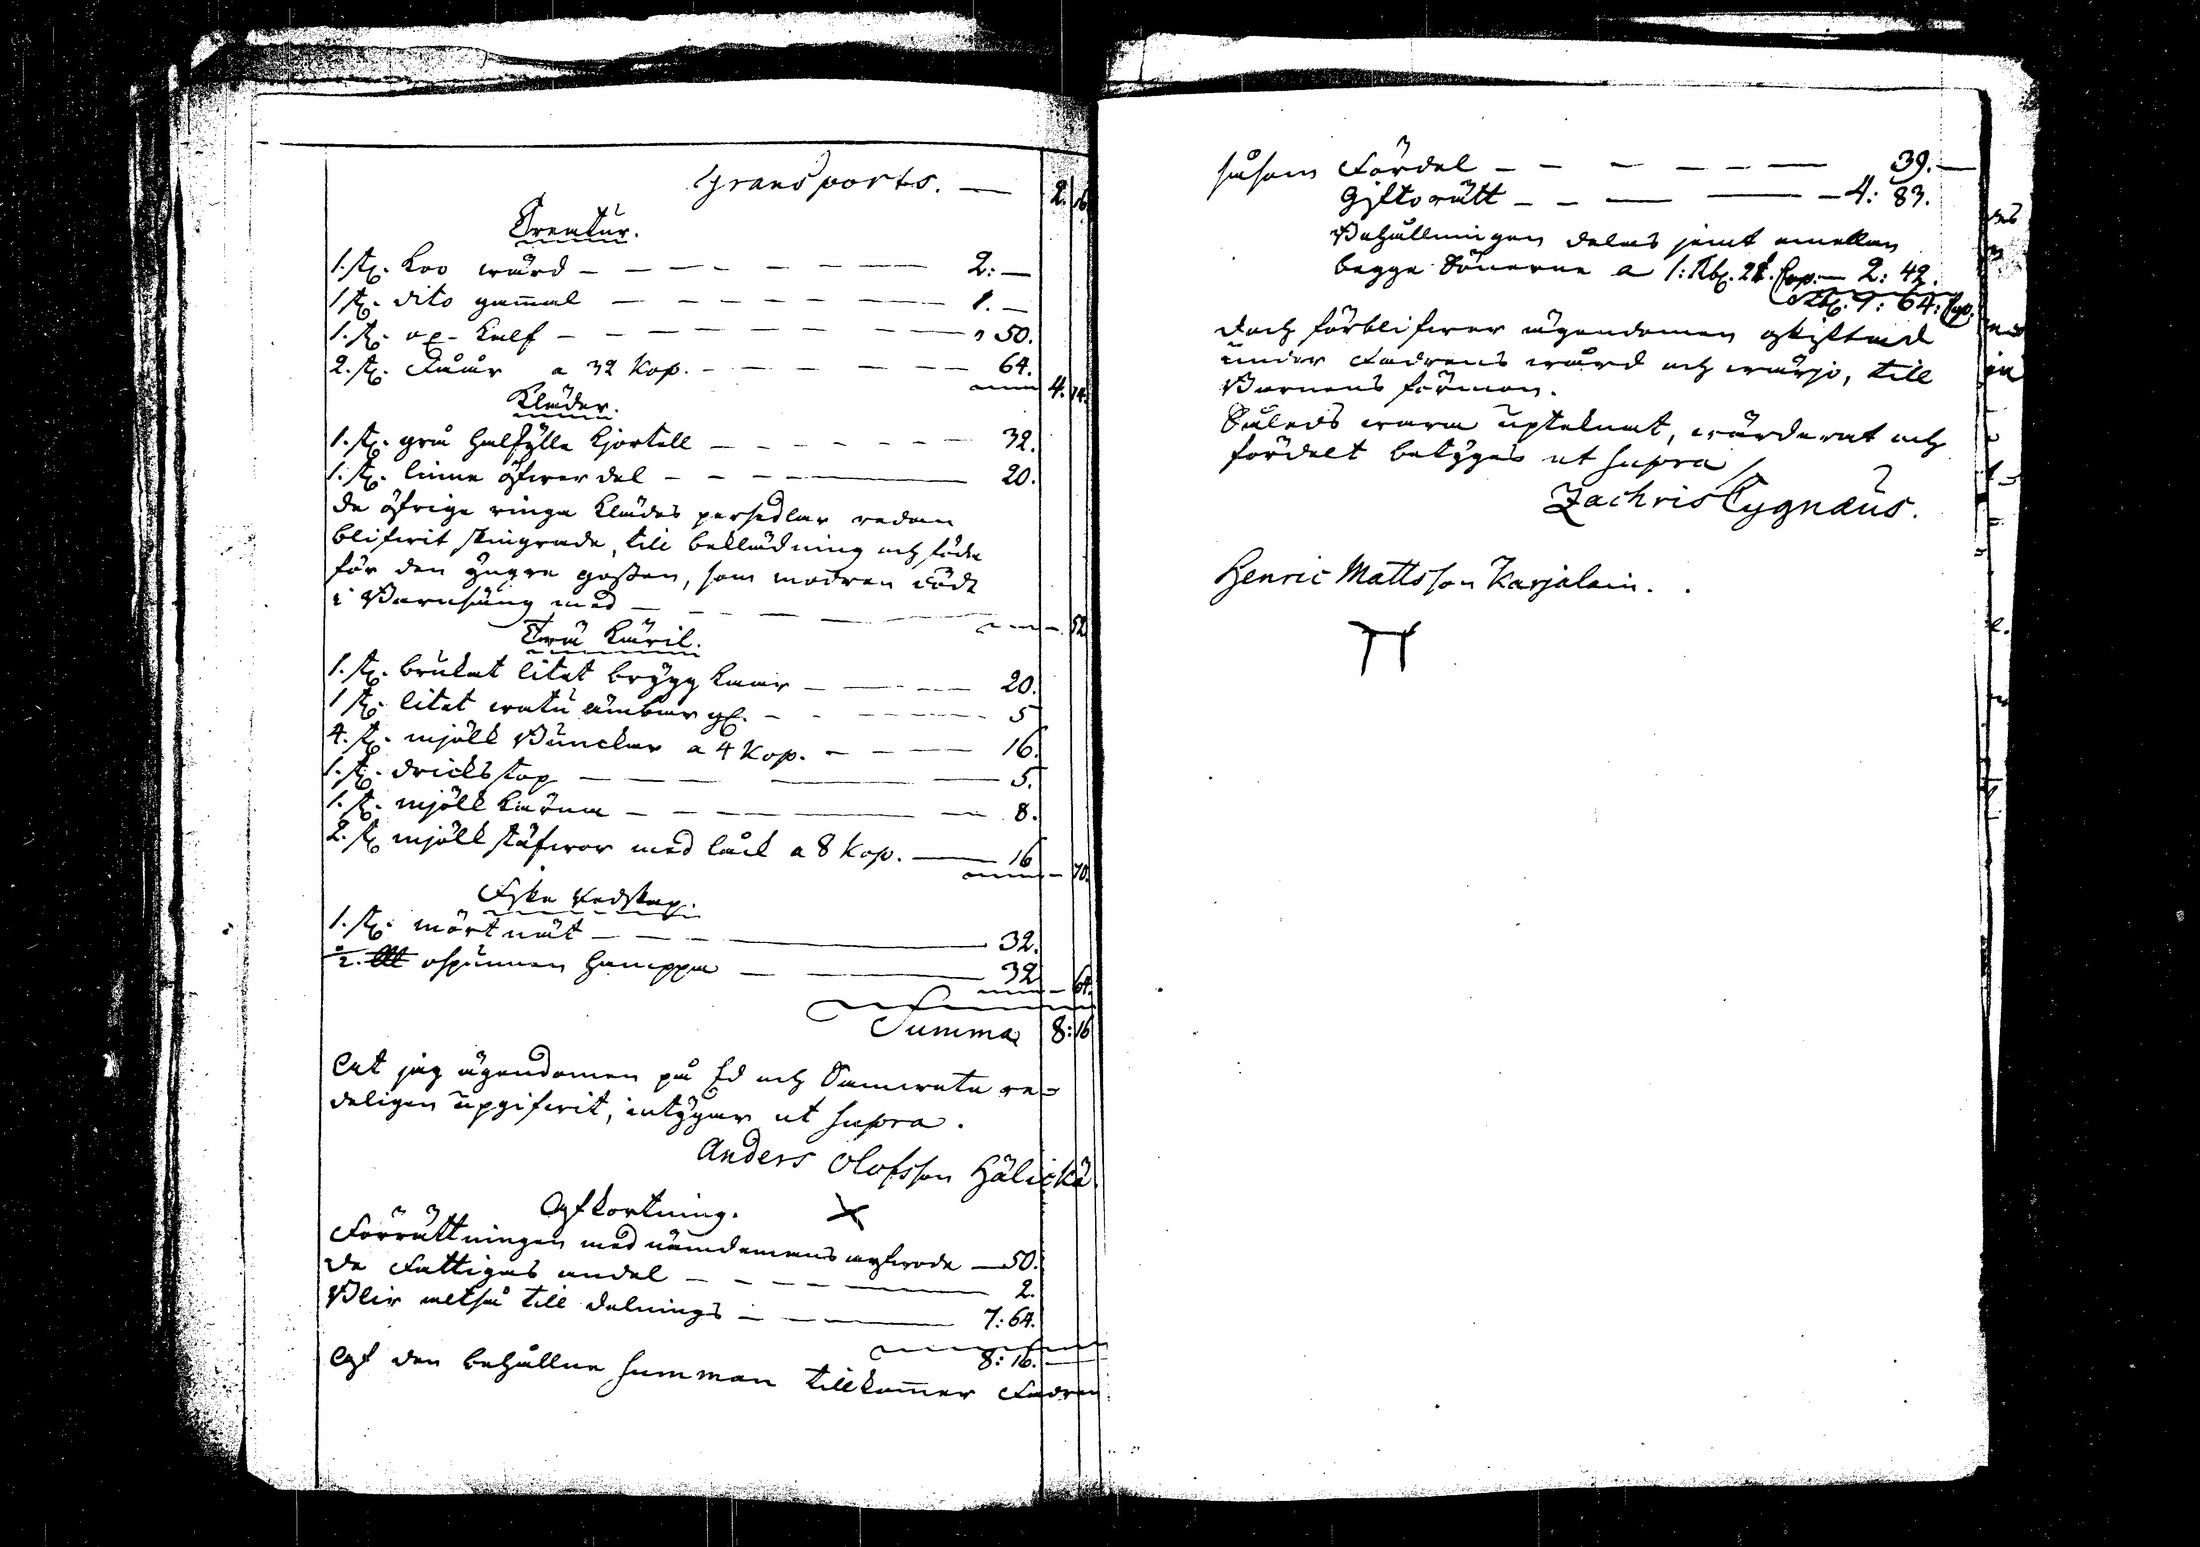 Transporte. — 2. 16
Creatur.
1. st. koo wärd — 2: —
1 st. dito gam̄al — 1. —
1. st. ox-kalf — " 50.
2. st. Fåår a 32 kop. — 64. 4. 14.
Kläder.
1. st. grå halfylle kjortell — 32.
1. st. linne öfwerdel — 20.
de öfrige ringa klädes persedlar redan
blifwit skingrade, till beklädning och föda
för den yngre gossen, som modren dödt
i Barnsäng med — 52
Trä käril.
1. st. brukat litet brygg kaar — 20.
1 st. litet watu ämbar gl. — 5
4. st. mjölk Bunckar a 4 kop. — 16.
1. st. dricks stop — 5.
1. st. mjölk kärna — 8.
2. st. mjölk stäfwor med låck a 8 kop. — 16 — 70.
Fiske redskap.
1. st. mört nät — 32.
ospunnen hamppa — 32 — 64.
Summa 8: 16
Att jag ägendomen på Ed och Samwete re-
deligen upgifwit, intygar ut supra.
Anders Olofsson Hälickä.
Afkortning. X
Förrättningen med nämdemans arfwode — 50.
De Fattigas andel — 2.
Blir altså till delnings — 7: 64.
8: 16.
Af den behållne summan tillkom̄er Fadren
såsom Fördel — 39. —
Giftorätt — 4: 83.
Behållningen delas jemt emellan
begge Sönerne a 1: Rbl. 21. Cop. — 2: 42.
Rbl. 7: 64: Cop.
doch förblifwer ägendomen oskiftad
under Fadrens wård och wärjo, till
Barnens förmon.
Såleds wara upteknat, wärderat och
fördelt betyges ut supra
Zachris Cygnæus.
Henric Mattsson Karjalain.